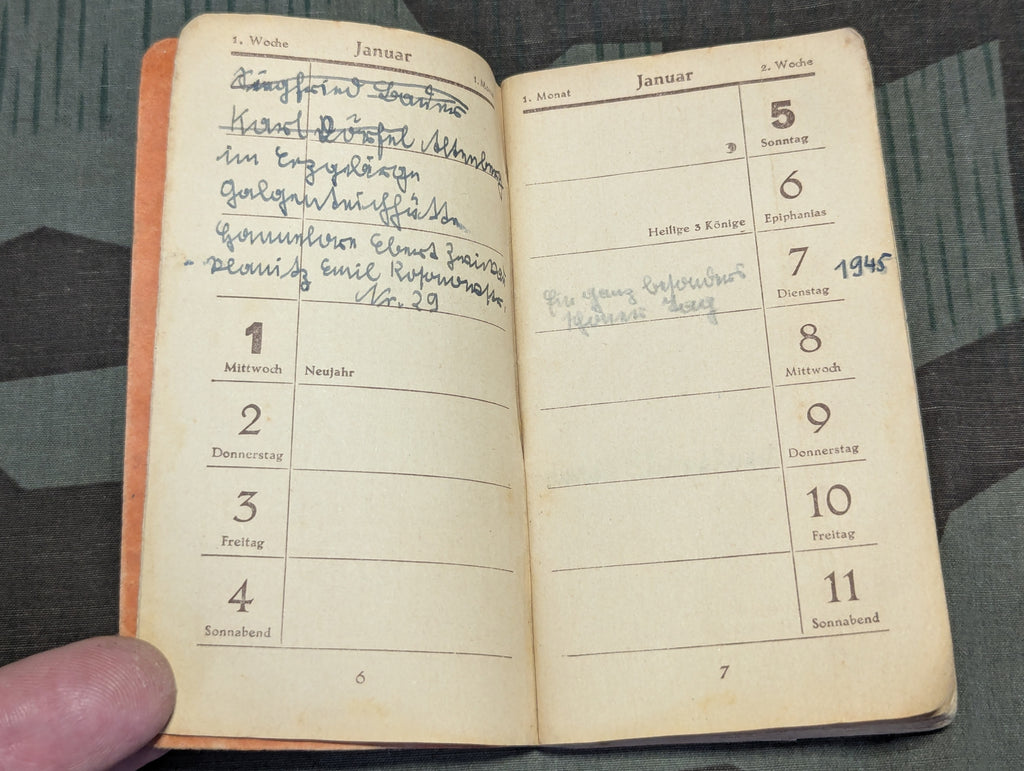 1. Woche Januar
Siegfried Bauer
Karl Altenberg
im Erzgebirge
Galgenteichhütte
Hannelore Ebert Zwickau
- Planitz Emil Rosenowstr.
Nr. 29
1 Mittwoch Neujahr
2 Donnerstag
3 Freitag
4 Sonnabend
6
1. Monat Januar 2. Woche
5 Sonntag
6 Epiphanias
Heilige 3 Könige
7 Dienstag 1945
Ein ganz besonders
schöner Tag
8 Mittwoch
9 Donnerstag
10 Freitag
11 Sonnabend
7